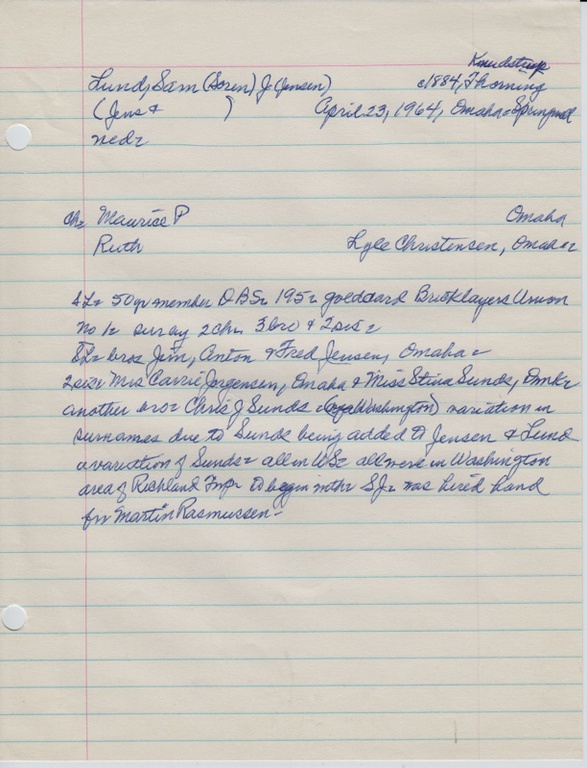 Knudstrup
Lund, Sam (Soren) J (Jensen) c1884, Thorning
(Jens & ) April 23, 1964, Omaha=Springwell
ned=
ch= Maurice P Omaha
Ruth Lyle Christensen, Omaha=
50 yr member DBS= 195= Bricklayers Union
No 1= surv by 2 ch, 3 bro & 2 sis=
bros Jim, Anton & Fred Jensen, Omaha=
2 sis= Mrs Carrie Jorgensen, Omaha & Miss Stina Sunds, Dmk=
another bro= Chris J Sunds (Washington) variation in
surnames due to Sunds being added to Jensen & Lund
a variation of Sunds= all in US= all were in Washington
area of Richland Twp= to begin with= SJ= was hired hand
for Martin Rasmussen=